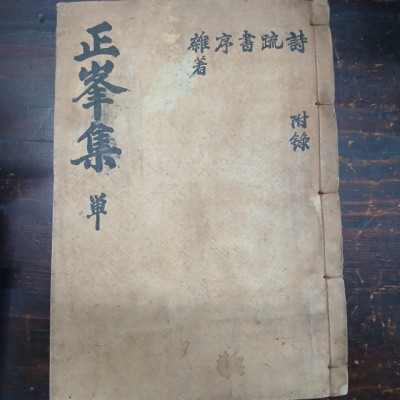 正峯集 単
詩 附錄
疏
書
序
雜著